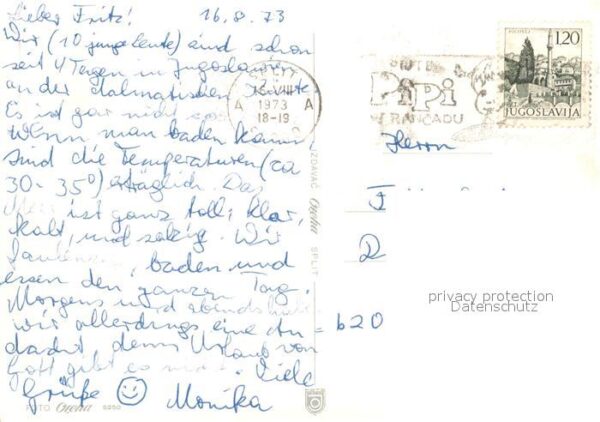 Lieber Fritz! 16.8.73
Wir (10 junge Leute) sind schon
seit 4 Tagen in Jugoslawien
an der dalmatischen Küste
Es ist gar nicht so
Wenn man baden kann,
sind die Temperaturen (ca
30-35°) erträglich. Das
Meer ist ganz toll; klar,
kalt, und salzig. Wir
baden und
essen den ganzen Tag.
Morgens und abends
wir allerdings eine An-
dacht denn Urlaub von
Gott gibt es Viele
Grüße Monika
FOTO
IZDAVAČ
SPLIT
SPLIT
VIII
1973
18-19
A A
PiPi
1.20
POČITELJ
JUGOSLAVIJA
Herrn
F
D
620
privacy protection
Datenschutz